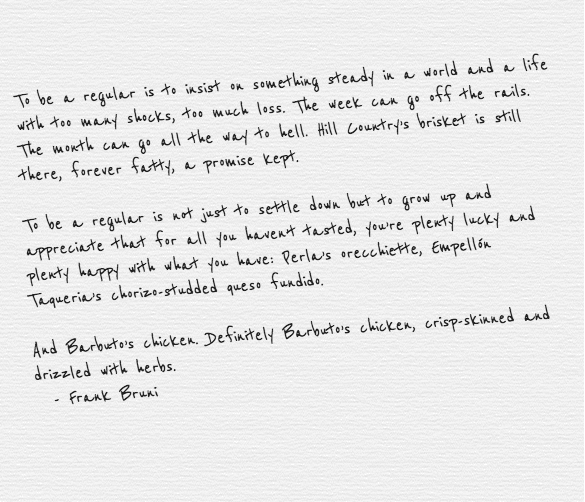 To be a regular is to insist on something steady in a world and a life
with too many shocks, too much loss. The week can go off the rails.
The month can go all the way to hell. Hill Country's brisket is still
there, forever fatty, a promise kept.

To be a regular is not just to settle down but to grow up and
appreciate that for all you haven't tasted, you're plenty lucky and
plenty happy with what you have: Perla's orecchiette, Empellón
Taqueria's chorizo-studded queso fundido.

And Barbuto's chicken. Definitely Barbuto's chicken, crisp-skinned and
drizzled with herbs.
- Frank Bruni